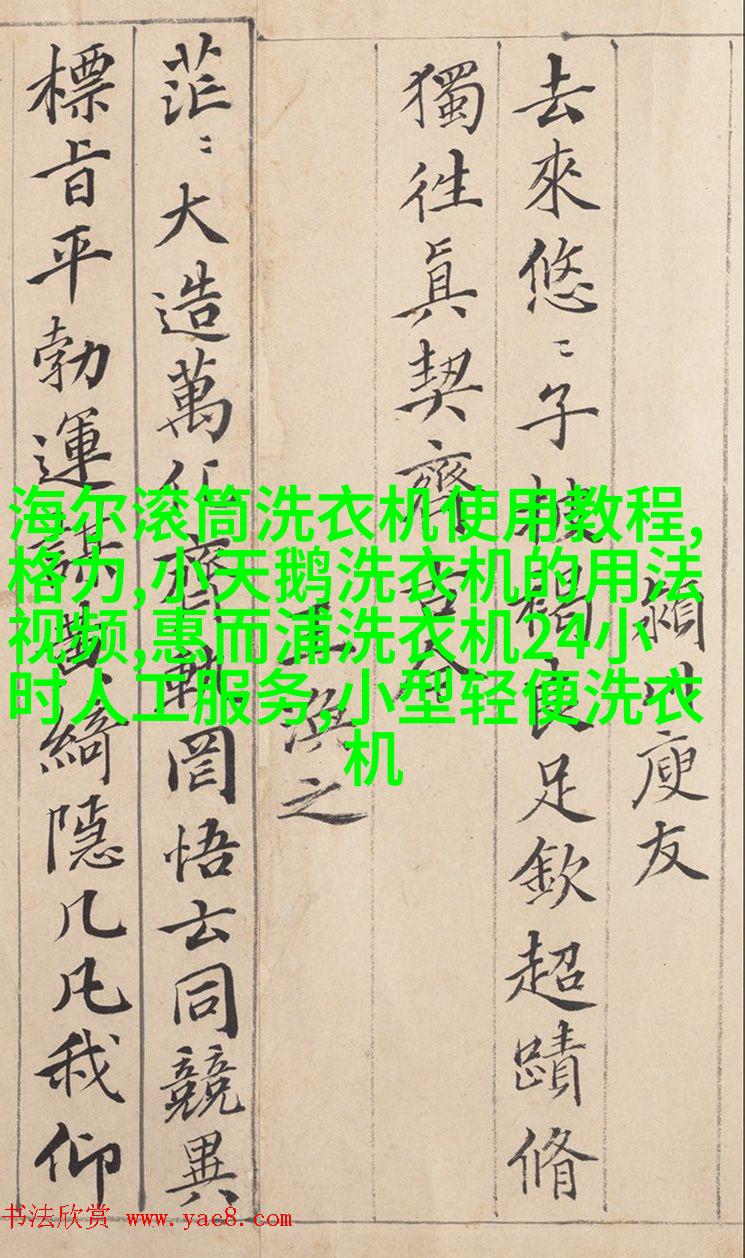 頴川庾友
去來悠〻子披褐良足欽超蹟脩
獨往眞契齊古今
王渙之
茫〻大造萬化齊軌罔悟玄同競異
標旨平勃運謀黃綺隱几凡我仰
海尔滚筒洗衣机使用教程,
格力,小天鹅洗衣机的用法
视频,惠而浦洗衣机24小
时人工服务,小型轻便洗衣
机
书法欣赏 www.yac8.com